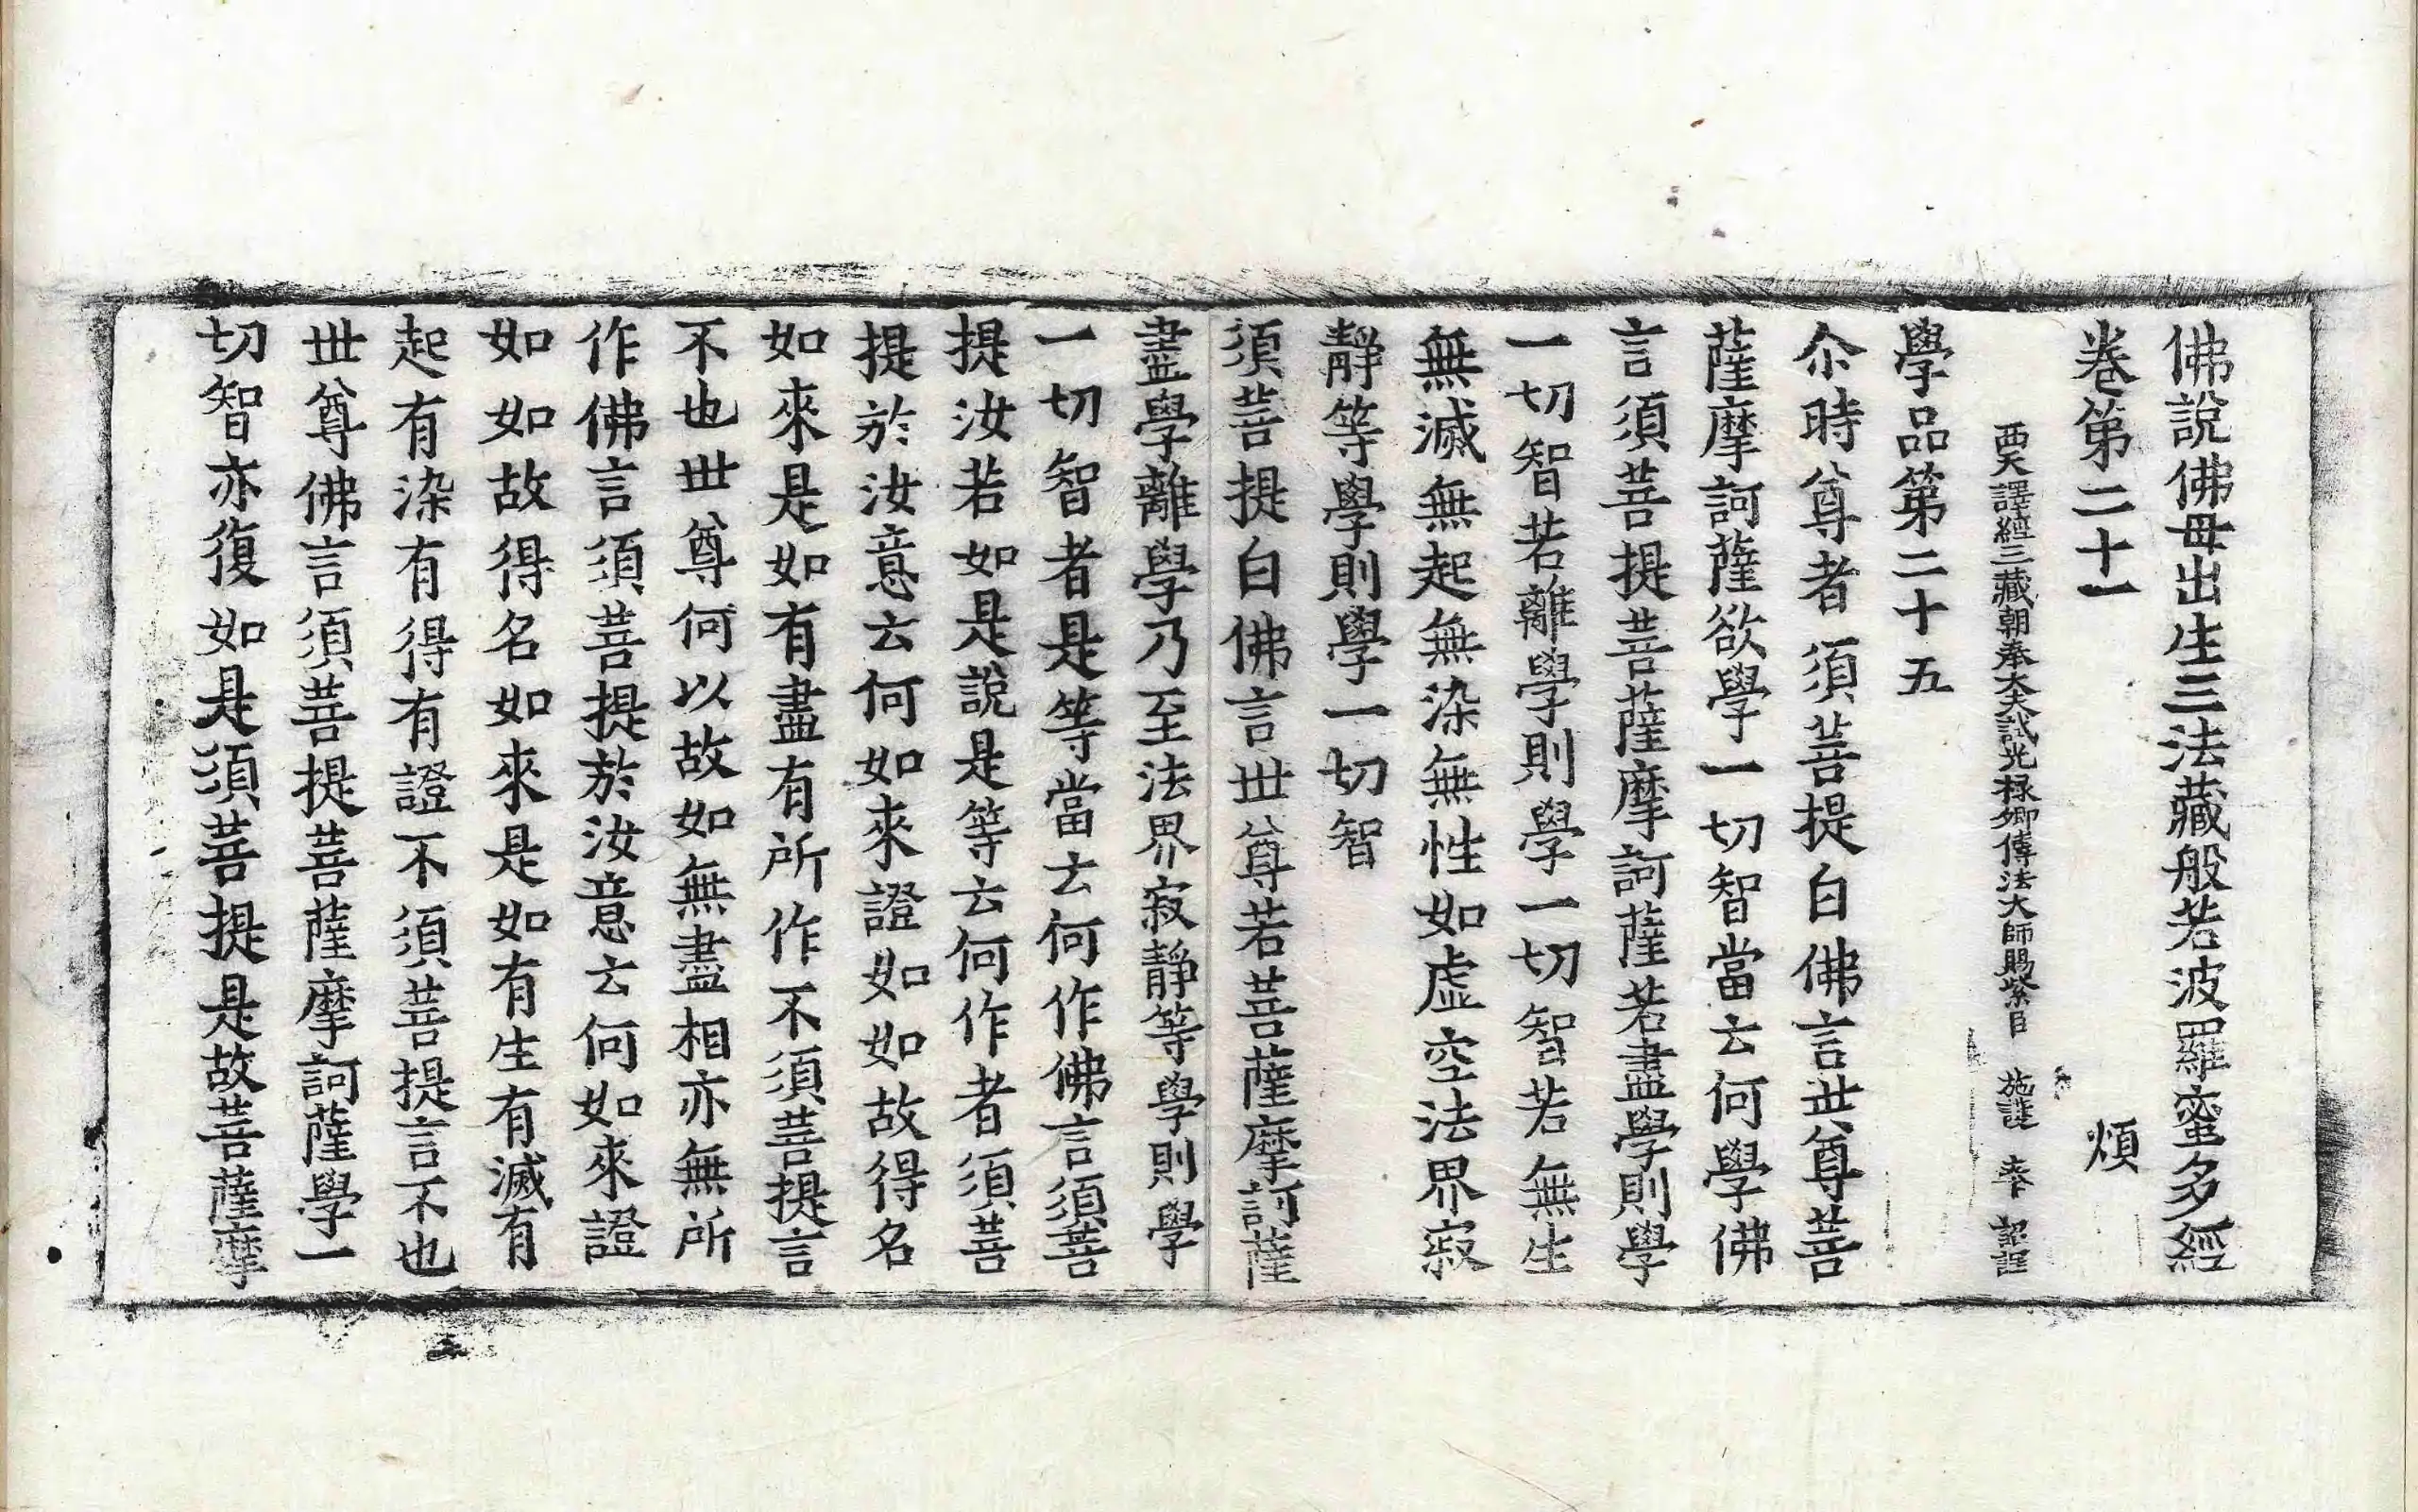 佛說佛母出生三法藏般若波羅蜜多經
卷第二十一　煩
西天譯經三藏朝奉大夫試光祿卿傳法大師賜紫臣　施護　奉　詔譯
學品第二十五
尒時尊者須菩提白佛言世尊菩
薩摩訶薩欲學一切智當云何學佛
言須菩提菩薩摩訶薩若盡學則學
一切智若離學則學一切智若無生
無滅無起無染無性如虛空法界寂
靜等學則學一切智
須菩提白佛言世尊若菩薩摩訶薩
盡學離學乃至法界寂靜等學則學
一切智者是等當云何作佛言須菩
提汝若如是說是等云何作者須菩
提於汝意云何如來證如如故得名
如來是如有盡有所作不須菩提言
不也世尊何以故如無盡相亦無所
作佛言須菩提於汝意云何如來證
如如故得名如來是如有生有滅有
起有染有得有證不須菩提言不也
世尊佛言須菩提菩薩摩訶薩學一
切智亦復如是須菩提是故菩薩摩